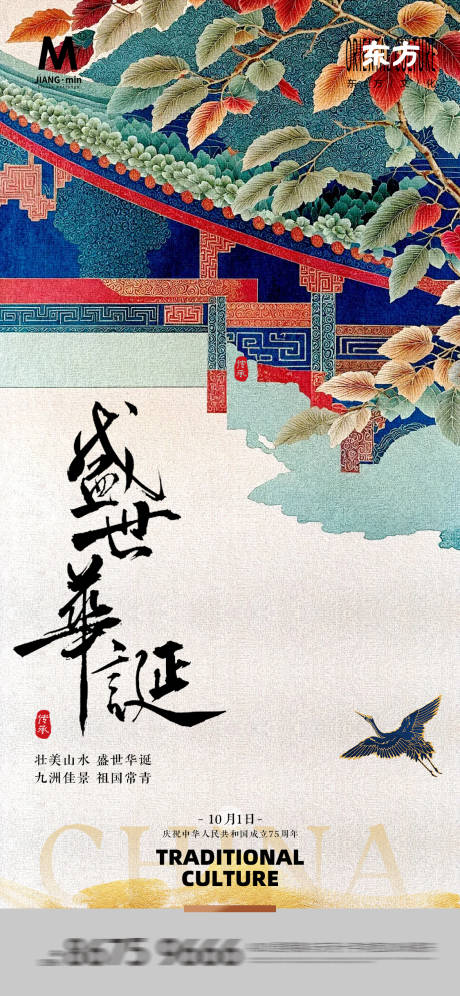 M
JIANG·min
东方
东方文化
传承
盛世華誕
传承
壮美山水 盛世华诞
九洲佳景 祖国常青
- 10月1日-
庆祝中华人民共和国成立75周年
CHINA
TRADITIONAL
CULTURE
8675 9666